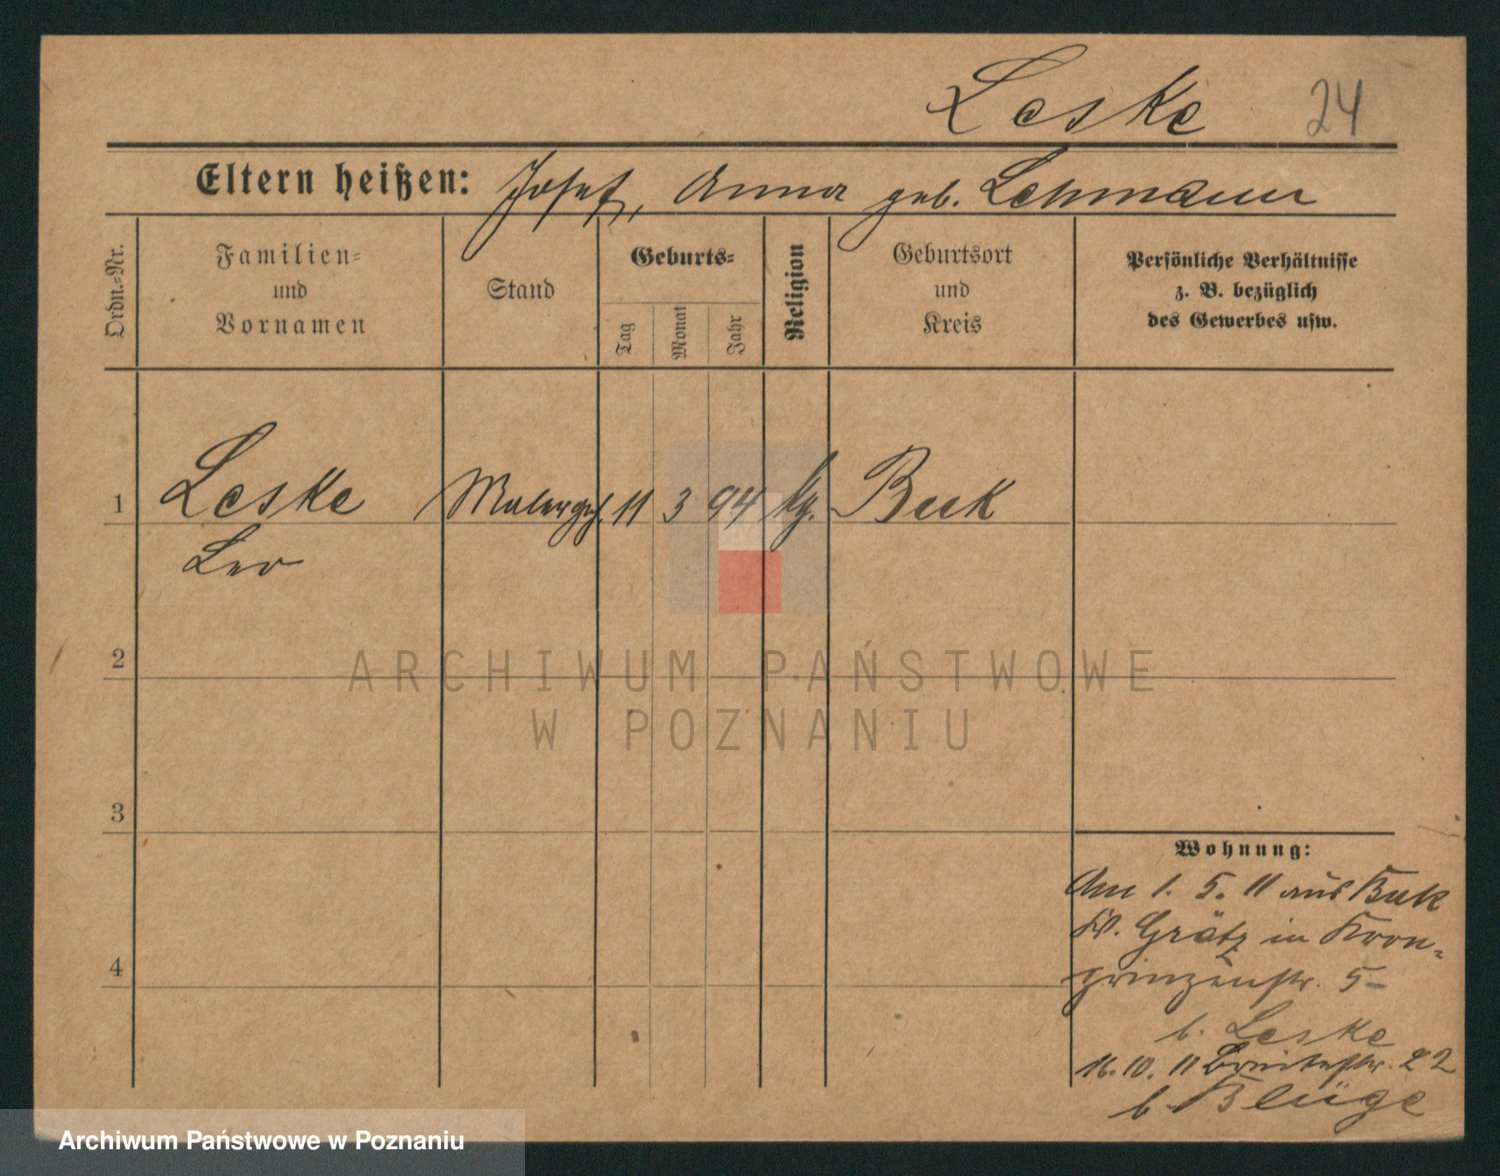 Leske 24
Eltern heißen: Josef, Anna geb. Lehmann
Ordn.-Nr.
Familien-
und
Vornamen
Stand
Geburts-
Tag
Monat
Jahr
Religion
Geburtsort
und
Kreis
Persönliche Verhältnisse
z. B. bezüglich
des Gewerbes usw.
1 Leske Malergeh. 11 3 94 kg. Buk
Leo
2
3
4
Wohnung:
Am 1. 5. 11 aus Buk
Kr. Grätz in Kron-
prinzenstr. 5
b. Leske
16. 10. 11 Breitestr. 22
b. Kluge
ARCHIWUM PAŃSTWOWE
W POZNANIU
Archiwum Państwowe w Poznaniu